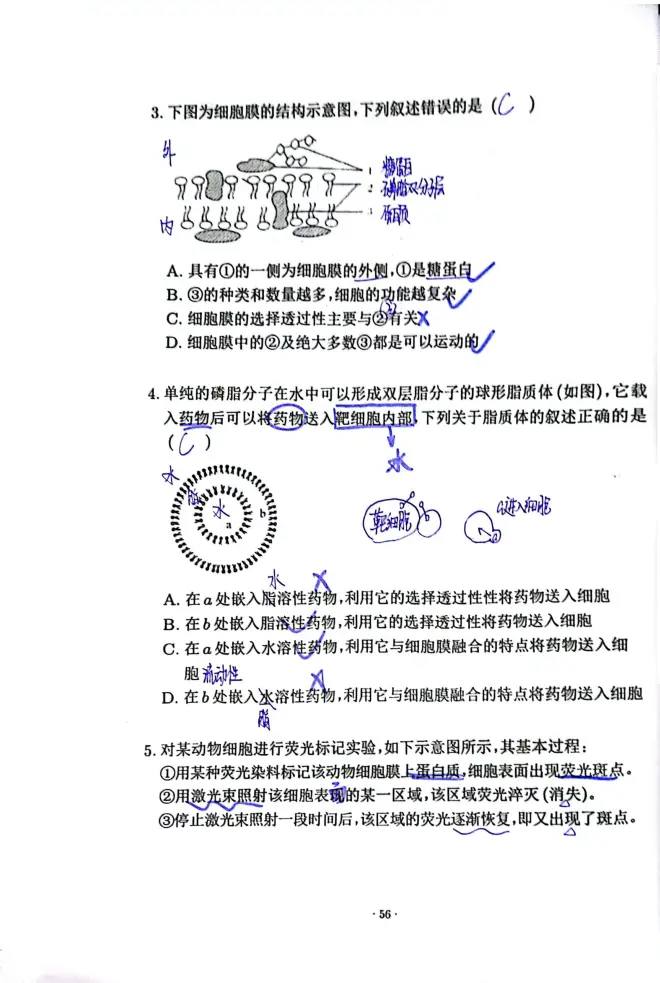 3. 下图为细胞膜的结构示意图,下列叙述错误的是 (C)
外
1 糖蛋白
2 磷脂双分子层
3 蛋白质
内
A. 具有①的一侧为细胞膜的外侧,①是糖蛋白
B. ③的种类和数量越多,细胞的功能越复杂
③
C. 细胞膜的选择透过性主要与②有关
D. 细胞膜中的②及绝大多数③都是可以运动的
4. 单纯的磷脂分子在水中可以形成双层脂分子的球形脂质体(如图),它载
入药物后可以将药物送入靶细胞内部,下列关于脂质体的叙述正确的是
(C)
水
水
脂
水
a
b
靶细胞
a进入细胞
a
水
A. 在a处嵌入脂溶性药物,利用它的选择透过性性将药物送入细胞
B. 在b处嵌入脂溶性药物,利用它的选择透过性将药物送入细胞
C. 在a处嵌入水溶性药物,利用它与细胞膜融合的特点将药物送入细
胞 流动性
D. 在b处嵌入水溶性药物,利用它与细胞膜融合的特点将药物送入细胞
脂
5. 对某动物细胞进行荧光标记实验,如下示意图所示,其基本过程:
①用某种荧光染料标记该动物细胞膜上蛋白质,细胞表面出现荧光斑点。
②用激光束照射该细胞表面的某一区域,该区域荧光淬灭(消失)。
③停止激光束照射一段时间后,该区域的荧光逐渐恢复,即又出现了斑点。
·56·